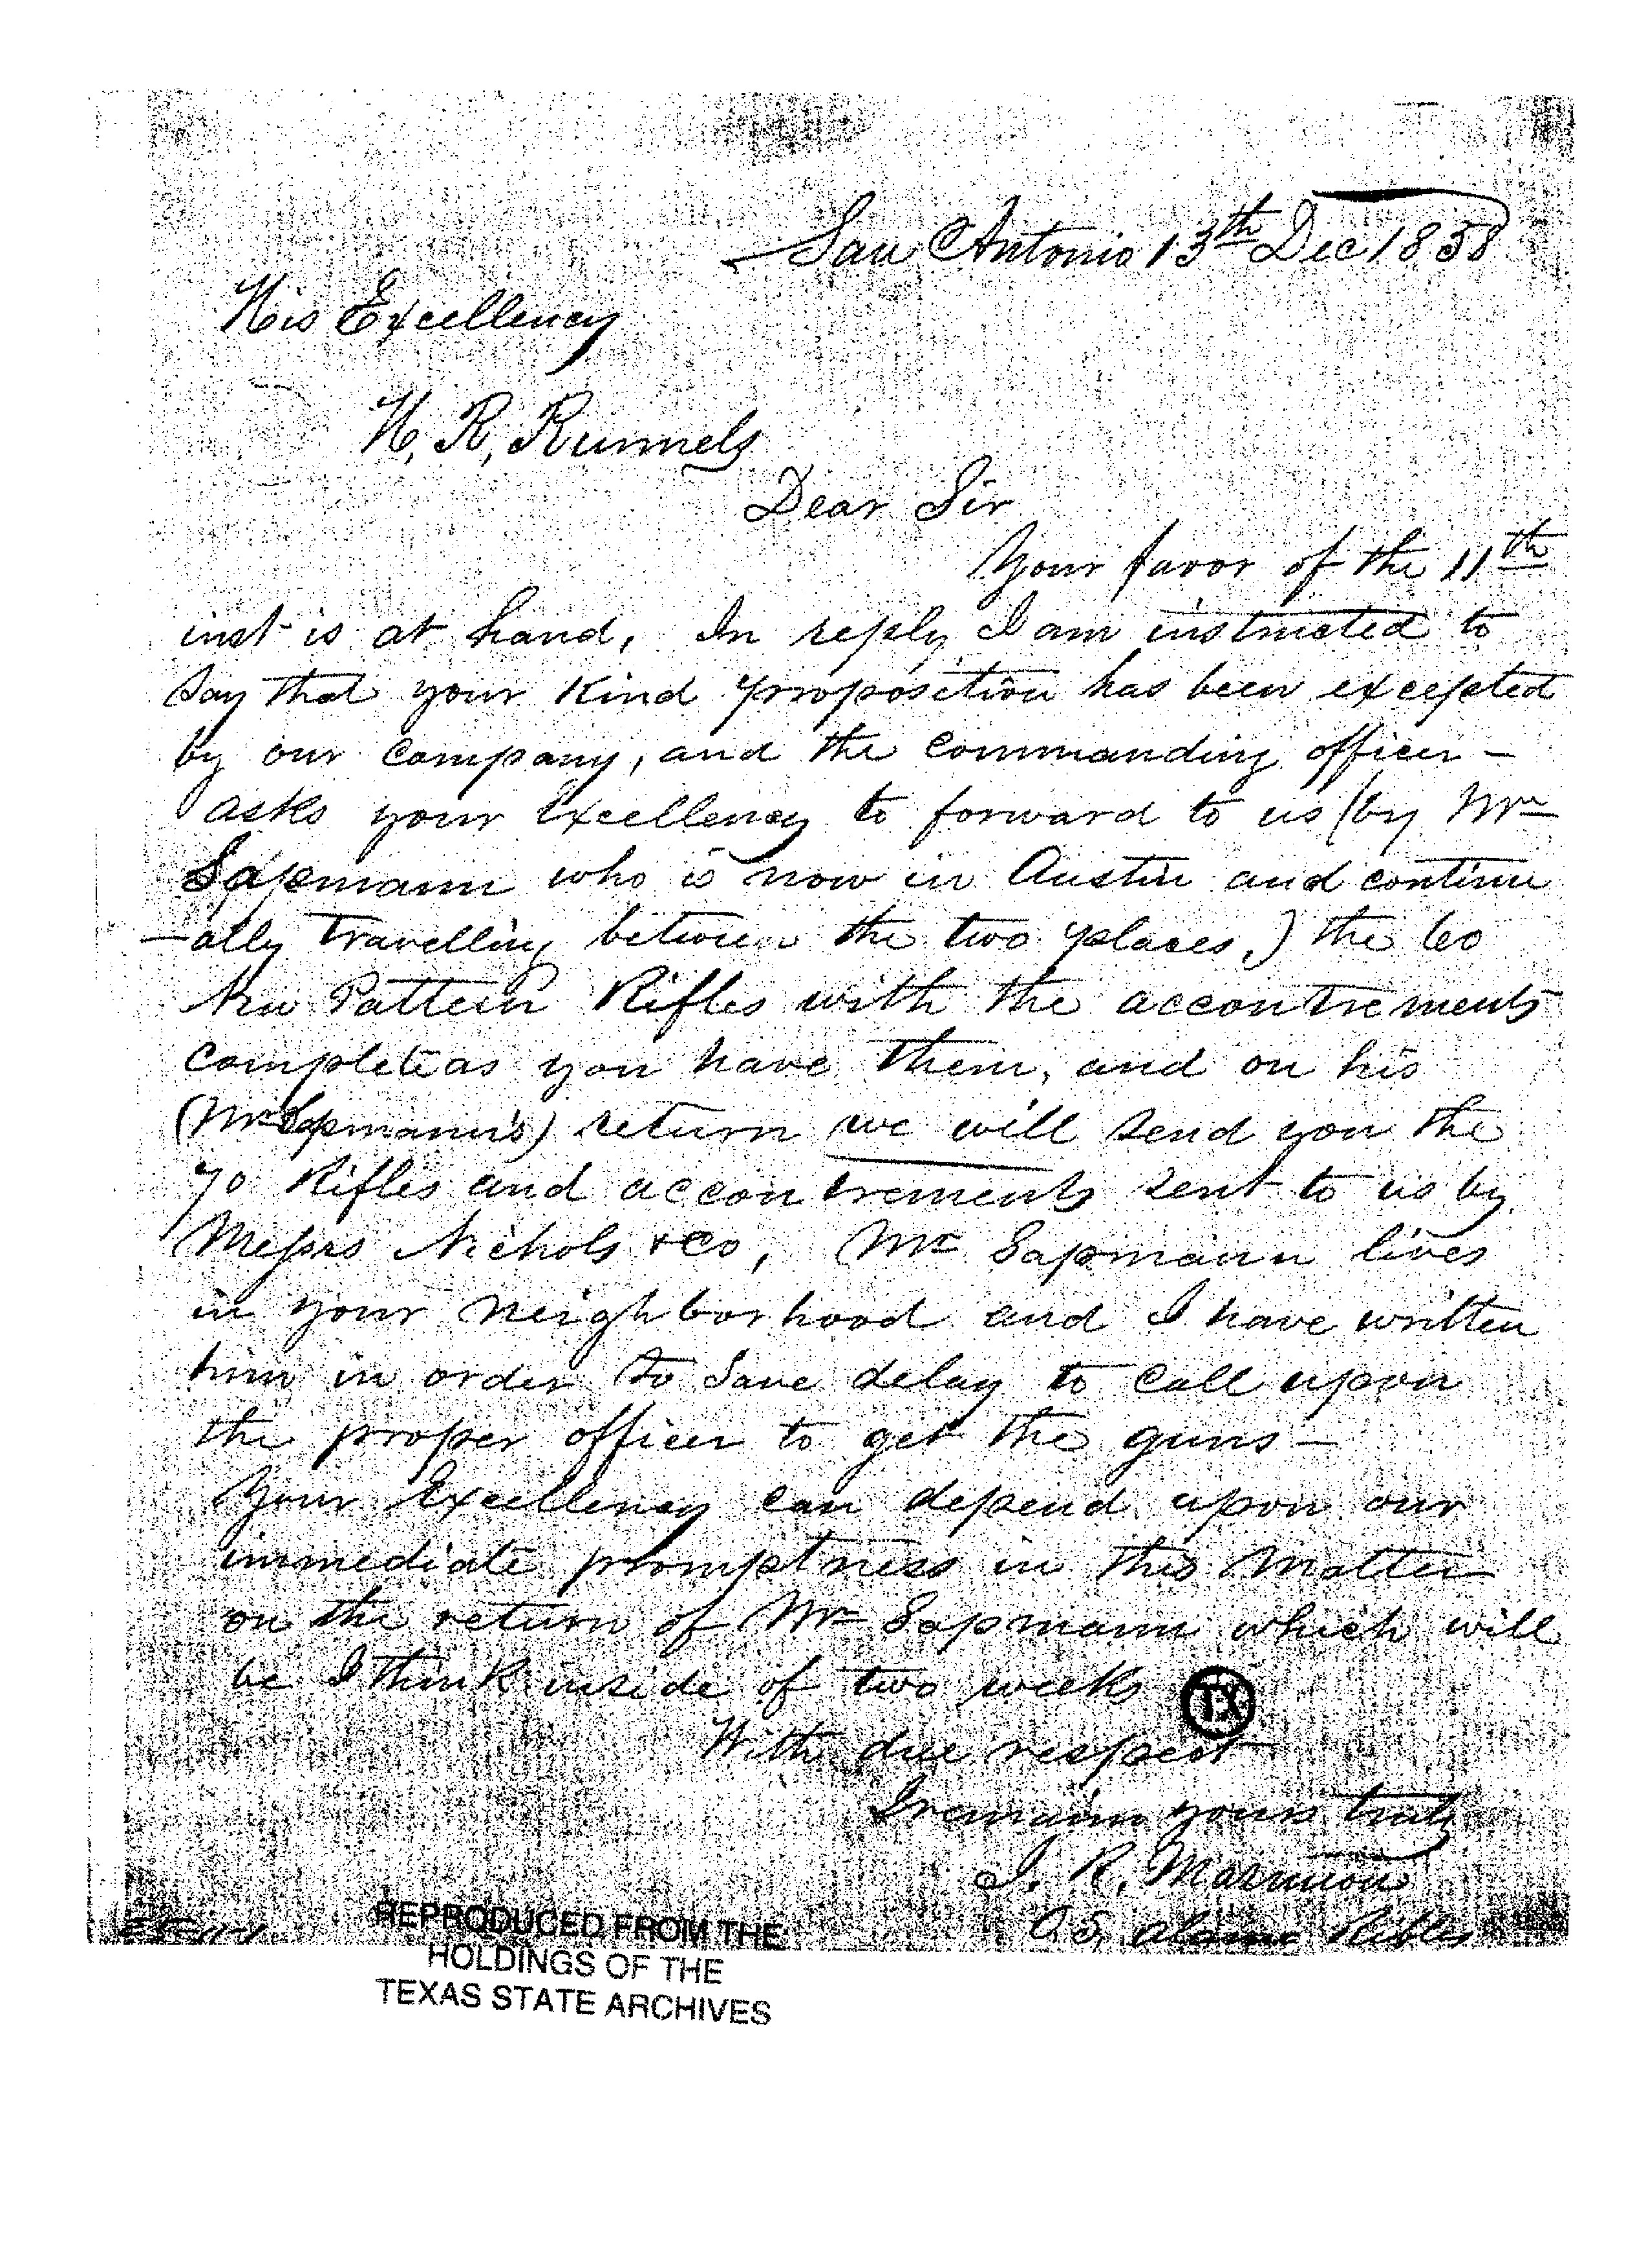 San Antonio 13th Dec 1858
His Excellency
H. R. Runnels
Dear Sir
Your favor of the 11th
inst is at hand, In reply I am instructed to
say that your kind proposition has been excepted
by our company, and the commanding officer -
asks your Excellency to forward to us (by Mr
Sapmann who is now in Austin and continu
-ally travelling between the two places,) the 60
New Pattern Rifles with the accontrements
complete as you have them, and on his
(Mr Sapmann's) return we will send you the
70 Rifles and accontrements sent to us by
Messrs Nichols & Co, Mr Sapmann lives
in your neighborhood and I have written
him in order to save delay to call upon
the proper officer to get the guns -
Your Excellency can depend upon our
immediate promptness in this matter
on the return of Mr Sapmann which will
be I think inside of two weeks
TX
With due respect
I remain yours truly
J. R. Marmion
O.S. Alamo Rifles
REPRODUCED FROM THE
HOLDINGS OF THE
TEXAS STATE ARCHIVES